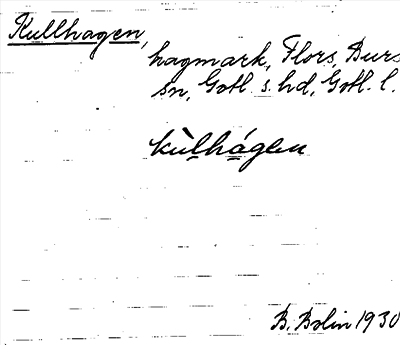 Kullhagen,
hagmark, Flors, Burs
sn, Gotl. s. hd, Gotl. l.
kùlhágen
B. Bolin 1930